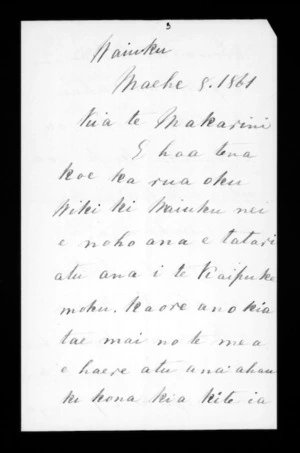 3
Waiuku
Maehe 9. 1861
Kia te Makarini
E hoa tena
koe ka rua oku
Wiki ki Waiuku nei
e noho ana e tatari
atu ana i te Kaipuke
moku. Kaore ano kia
tae mai no te mea
e haere atu ana ahau
ki kona kia kite ia